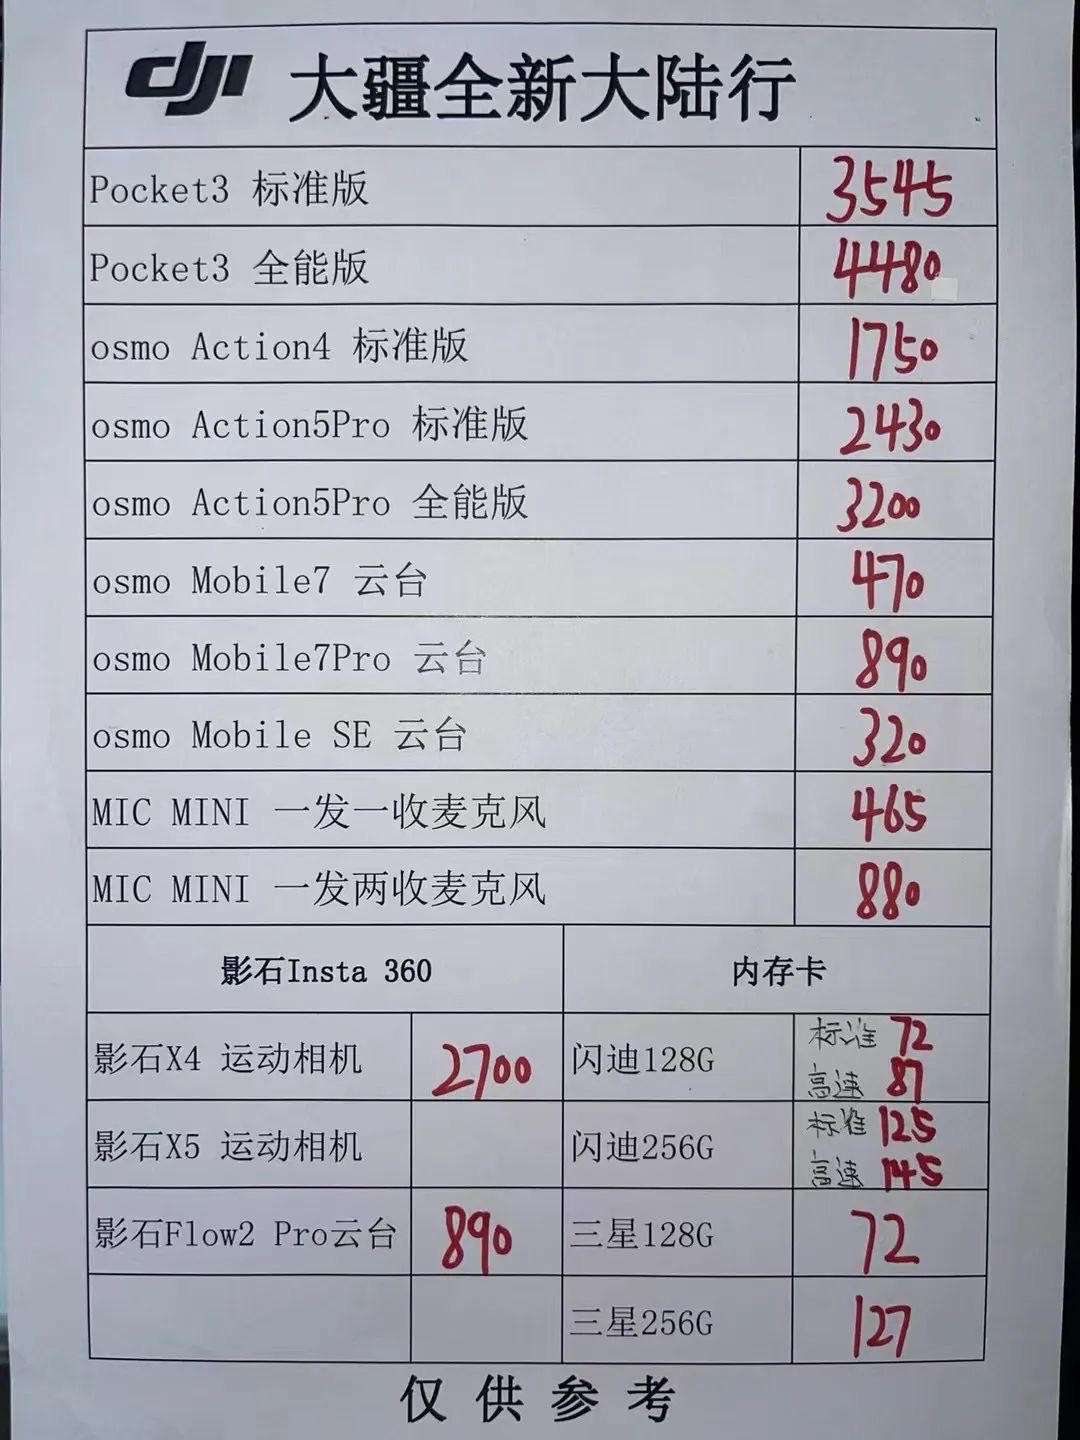 dji 大疆全新大陆行
Pocket3 标准版 3545
Pocket3 全能版 4480
osmo Action4 标准版 1750
osmo Action5Pro 标准版 2430
osmo Action5Pro 全能版 3200
osmo Mobile7 云台 470
osmo Mobile7Pro 云台 890
osmo Mobile SE 云台 320
MIC MINI 一发一收麦克风 465
MIC MINI 一发两收麦克风 880
影石Insta 360 内存卡
影石X4 运动相机 2700 闪迪128G 标准 72
高速 87
影石X5 运动相机 闪迪256G 标准 125
高速 145
影石Flow2 Pro云台 890 三星128G 72
三星256G 127
仅供参考